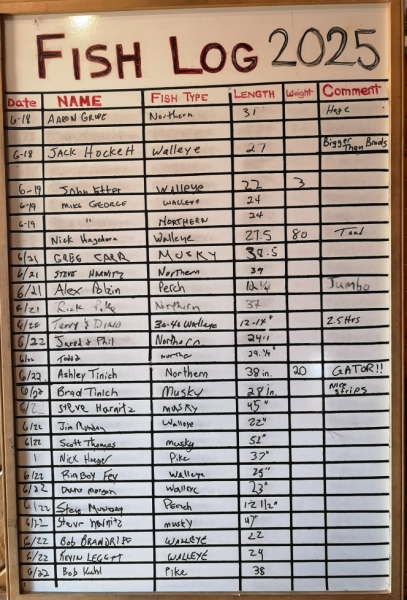 FISH LOG 2025
Date NAME FISH TYPE LENGTH Weight Comment
6-18 AARON GRUPE Northern 31 Huge
6-18 JACK HOCKETT Walleye 27 Bigger Than Brads
6-19 John Etter Walleye 22 3
6-19 MIKE GEORGE WALLEYE 24
6-19 " NORTHERN 24
Nick Hagedorn Walleye 27.5 80 Toad
6/21 GREG CARR MUSKY 38.5
6/21 STEVE HARNITZ Northern 39
6/21 Alex Polzin Perch 12 1/4 Jumbo
6/21 Rick Northern 37
Terry & David 30-40 Walleye 12-14" 2.5 Hrs
6/22 Jared & Phil Northern 24"
6/22 Todd 29 1/4"
6/22 Ashley Tinich Northern 38 in. 20 GATOR!!
6/22 Brad Tinich Musky 28 in. Nice Strips
6/2 STEVE Harnitz MUSKY 45"
6/22 Jim Walleye 22"
6/22 Scott Thomas musky 52"
Nick Hager Pike 37"
6/22 Rin Boy Fey Walleye 25"
6/22 morgan Walleye 23"
6/22 Steve Munday Perch 12 1/2"
6/22 Steve Harnitz musky 47"
6/22 Bob BRANDRIFF WALLEYE 22
6/22 KEVIN LEGGETT WALLEYE 24
6/22 Bob Kuhl Pike 38